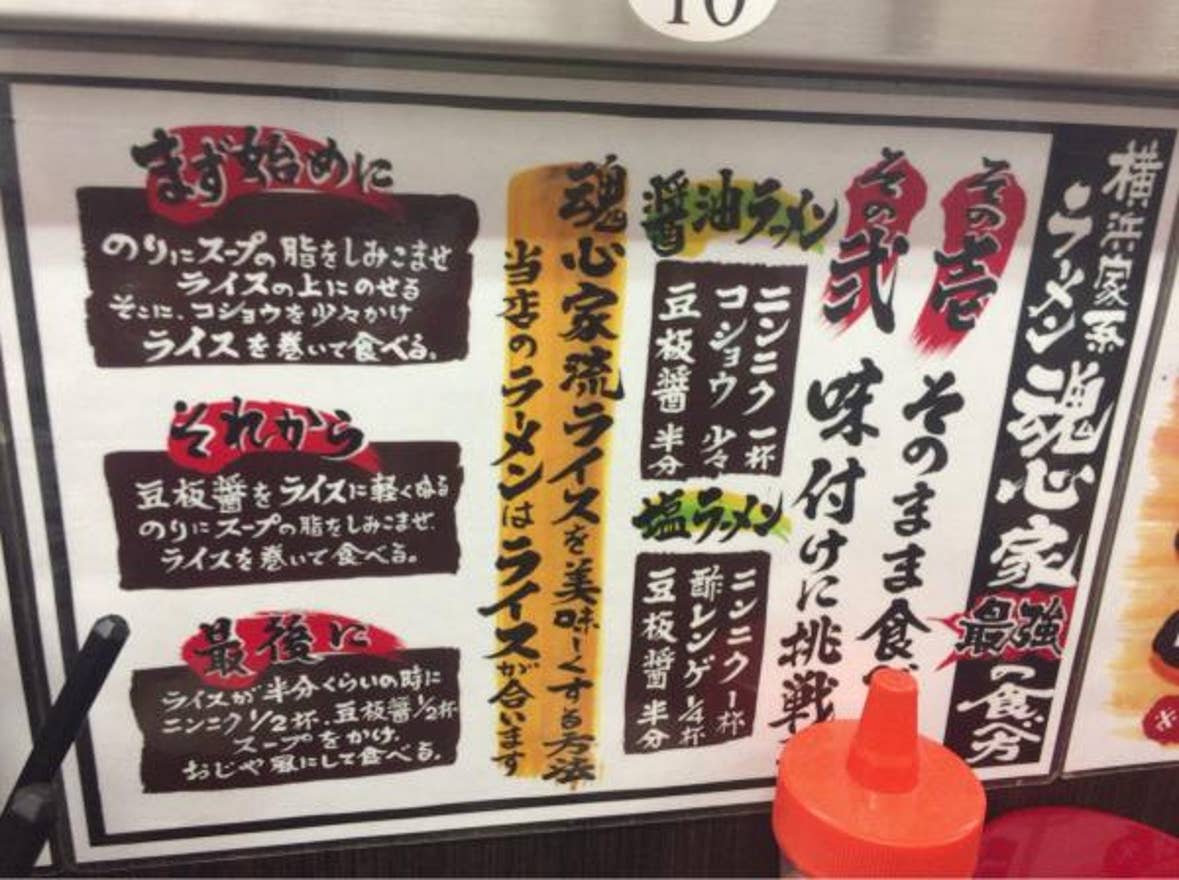 10
横浜家系
ラーメン魂心家
最強の食べ方
その壱
そのまま食べ
その弐
味付けに挑戦
醤油ラーメン
ニンニク 一杯
コショウ 少々
豆板醤 半分
塩ラーメン
ニンニク 一杯
酢レンゲ 1/4杯
豆板醤 半分
魂心家流ライスを美味しくする方法
当店のラーメンはライスが合います
まず始めに
のりにスープの脂をしみこませ
ライスの上にのせる
そこに、コショウを少々かけ
ライスを巻いて食べる。
それから
豆板醤をライスに軽くぬる
のりにスープの脂をしみこませ、
ライスを巻いて食べる。
最後に
ライスが半分くらいの時に
ニンニク1/2杯、豆板醤1/2杯
スープをかけ、
おじや風にして食べる。